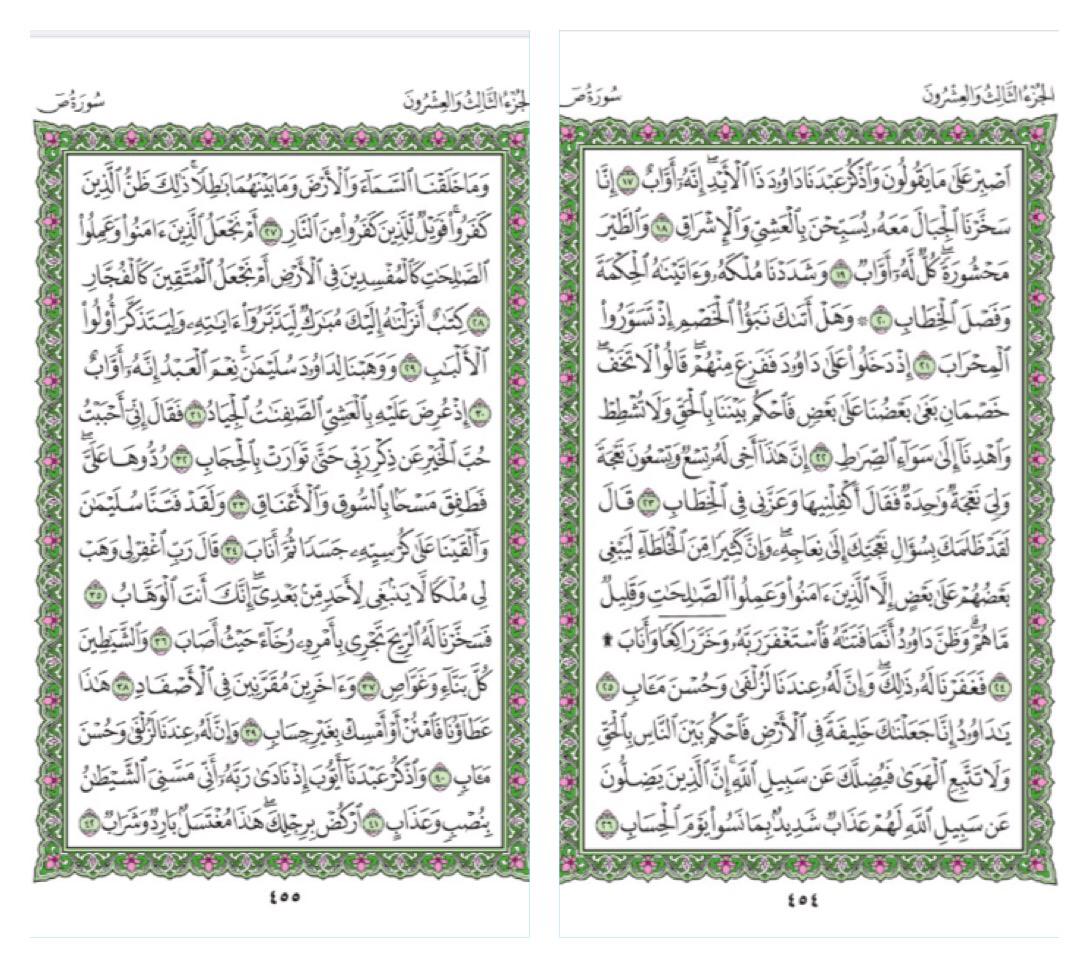 الجُزْءُ الثَّالِثُ وَالعِشْرُونَ
سُورَةُ صٓ
ٱصْبِرْ عَلَىٰ مَا يَقُولُونَ وَٱذْكُرْ عَبْدَنَا دَاوُۥدَ ذَا ٱلْأَيْدِ ۖ إِنَّهُۥٓ أَوَّابٌ ١٧ إِنَّا
سَخَّرْنَا ٱلْجِبَالَ مَعَهُۥ يُسَبِّحْنَ بِٱلْعَشِىِّ وَٱلْإِشْرَاقِ ١٨ وَٱلطَّيْرَ
مَحْشُورَةً ۖ كُلٌّ لَّهُۥٓ أَوَّابٌ ١٩ وَشَدَدْنَا مُلْكَهُۥ وَءَاتَيْنَٰهُ ٱلْحِكْمَةَ
وَفَصْلَ ٱلْخِطَابِ ٢٠ ۞ وَهَلْ أَتَىٰكَ نَبَؤُا۟ ٱلْخَصْمِ إِذْ تَسَوَّرُوا۟
ٱلْمِحْرَابَ ٢١ إِذْ دَخَلُوا۟ عَلَىٰ دَاوُۥدَ فَفَزِعَ مِنْهُمْ ۖ قَالُوا۟ لَا تَخَفْ ۖ
خَصْمَانِ بَغَىٰ بَعْضُنَا عَلَىٰ بَعْضٍ فَٱحْكُم بَيْنَنَا بِٱلْحَقِّ وَلَا تُشْطِطْ
وَٱهْدِنَآ إِلَىٰ سَوَآءِ ٱلصِّرَٰطِ ٢٢ إِنَّ هَٰذَآ أَخِى لَهُۥ تِسْعٌ وَتِسْعُونَ نَعْجَةً
وَلِىَ نَعْجَةٌ وَٰحِدَةٌ فَقَالَ أَكْفِلْنِيهَا وَعَزَّنِى فِى ٱلْخِطَابِ ٢٣ قَالَ
لَقَدْ ظَلَمَكَ بِسُؤَالِ نَعْجَتِكَ إِلَىٰ نِعَاجِهِۦ ۖ وَإِنَّ كَثِيرًا مِّنَ ٱلْخُلَطَآءِ لَيَبْغِى
بَعْضُهُمْ عَلَىٰ بَعْضٍ إِلَّا ٱلَّذِينَ ءَامَنُوا۟ وَعَمِلُوا۟ ٱلصَّٰلِحَٰتِ وَقَلِيلٌ
مَّا هُمْ ۗ وَظَنَّ دَاوُۥدُ أَنَّمَا فَتَنَّٰهُ فَٱسْتَغْفَرَ رَبَّهُۥ وَخَرَّ رَاكِعًا وَأَنَابَ ۩
٢٤ فَغَفَرْنَا لَهُۥ ذَٰلِكَ ۖ وَإِنَّ لَهُۥ عِندَنَا لَزُلْفَىٰ وَحُسْنَ مَـَٔابٍ ٢٥
يَٰدَاوُۥدُ إِنَّا جَعَلْنَٰكَ خَلِيفَةً فِى ٱلْأَرْضِ فَٱحْكُم بَيْنَ ٱلنَّاسِ بِٱلْحَقِّ
وَلَا تَتَّبِعِ ٱلْهَوَىٰ فَيُضِلَّكَ عَن سَبِيلِ ٱللَّهِ ۚ إِنَّ ٱلَّذِينَ يَضِلُّونَ
عَن سَبِيلِ ٱللَّهِ لَهُمْ عَذَابٌ شَدِيدٌۢ بِمَا نَسُوا۟ يَوْمَ ٱلْحِسَابِ ٢٦
٤٥٤
الجُزْءُ الثَّالِثُ وَالعِشْرُونَ
سُورَةُ صٓ
وَمَا خَلَقْنَا ٱلسَّمَآءَ وَٱلْأَرْضَ وَمَا بَيْنَهُمَا بَٰطِلًا ۚ ذَٰلِكَ ظَنُّ ٱلَّذِينَ
كَفَرُوا۟ ۚ فَوَيْلٌ لِّلَّذِينَ كَفَرُوا۟ مِنَ ٱلنَّارِ ٢٧ أَمْ نَجْعَلُ ٱلَّذِينَ ءَامَنُوا۟ وَعَمِلُوا۟
ٱلصَّٰلِحَٰتِ كَٱلْمُفْسِدِينَ فِى ٱلْأَرْضِ أَمْ نَجْعَلُ ٱلْمُتَّقِينَ كَٱلْفُجَّارِ
٢٨ كِتَٰبٌ أَنزَلْنَٰهُ إِلَيْكَ مُبَٰرَكٌ لِّيَدَّبَّرُوٓا۟ ءَايَٰتِهِۦ وَلِيَتَذَكَّرَ أُو۟لُوا۟
ٱلْأَلْبَٰبِ ٢٩ وَوَهَبْنَا لِدَاوُۥدَ سُلَيْمَٰنَ ۚ نِعْمَ ٱلْعَبْدُ ۖ إِنَّهُۥٓ أَوَّابٌ
٣٠ إِذْ عُرِضَ عَلَيْهِ بِٱلْعَشِىِّ ٱلصَّٰفِنَٰتُ ٱلْجِيَادُ ٣١ فَقَالَ إِنِّىٓ أَحْبَبْتُ
حُبَّ ٱلْخَيْرِ عَن ذِكْرِ رَبِّى حَتَّىٰ تَوَارَتْ بِٱلْحِجَابِ ٣٢ رُدُّوهَا عَلَىَّ ۖ
فَطَفِقَ مَسْحًۢا بِٱلسُّوقِ وَٱلْأَعْنَاقِ ٣٣ وَلَقَدْ فَتَنَّا سُلَيْمَٰنَ
وَأَلْقَيْنَا عَلَىٰ كُرْسِيِّهِۦ جَسَدًا ثُمَّ أَنَابَ ٣٤ قَالَ رَبِّ ٱغْفِرْ لِى وَهَبْ
لِى مُلْكًا لَّا يَنۢبَغِى لِأَحَدٍ مِّنۢ بَعْدِىٓ ۖ إِنَّكَ أَنتَ ٱلْوَهَّابُ ٣٥
فَسَخَّرْنَا لَهُ ٱلرِّيحَ تَجْرِى بِأَمْرِهِۦ رُخَآءً حَيْثُ أَصَابَ ٣٦ وَٱلشَّيَٰطِينَ
كُلَّ بَنَّآءٍ وَغَوَّاصٍ ٣٧ وَءَاخَرِينَ مُقَرَّنِينَ فِى ٱلْأَصْفَادِ ٣٨ هَٰذَا
عَطَآؤُنَا فَٱمْنُنْ أَوْ أَمْسِكْ بِغَيْرِ حِسَابٍ ٣٩ وَإِنَّ لَهُۥ عِندَنَا لَزُلْفَىٰ وَحُسْنَ
مَـَٔابٍ ٤٠ وَٱذْكُرْ عَبْدَنَآ أَيُّوبَ إِذْ نَادَىٰ رَبَّهُۥٓ أَنِّى مَسَّنِىَ ٱلشَّيْطَٰنُ
بِنُصْبٍ وَعَذَابٍ ٤١ ٱرْكُضْ بِرِجْلِكَ ۖ هَٰذَا مُغْتَسَلٌۢ بَارِدٌ وَشَرَابٌ ٤٢
٤٥٥